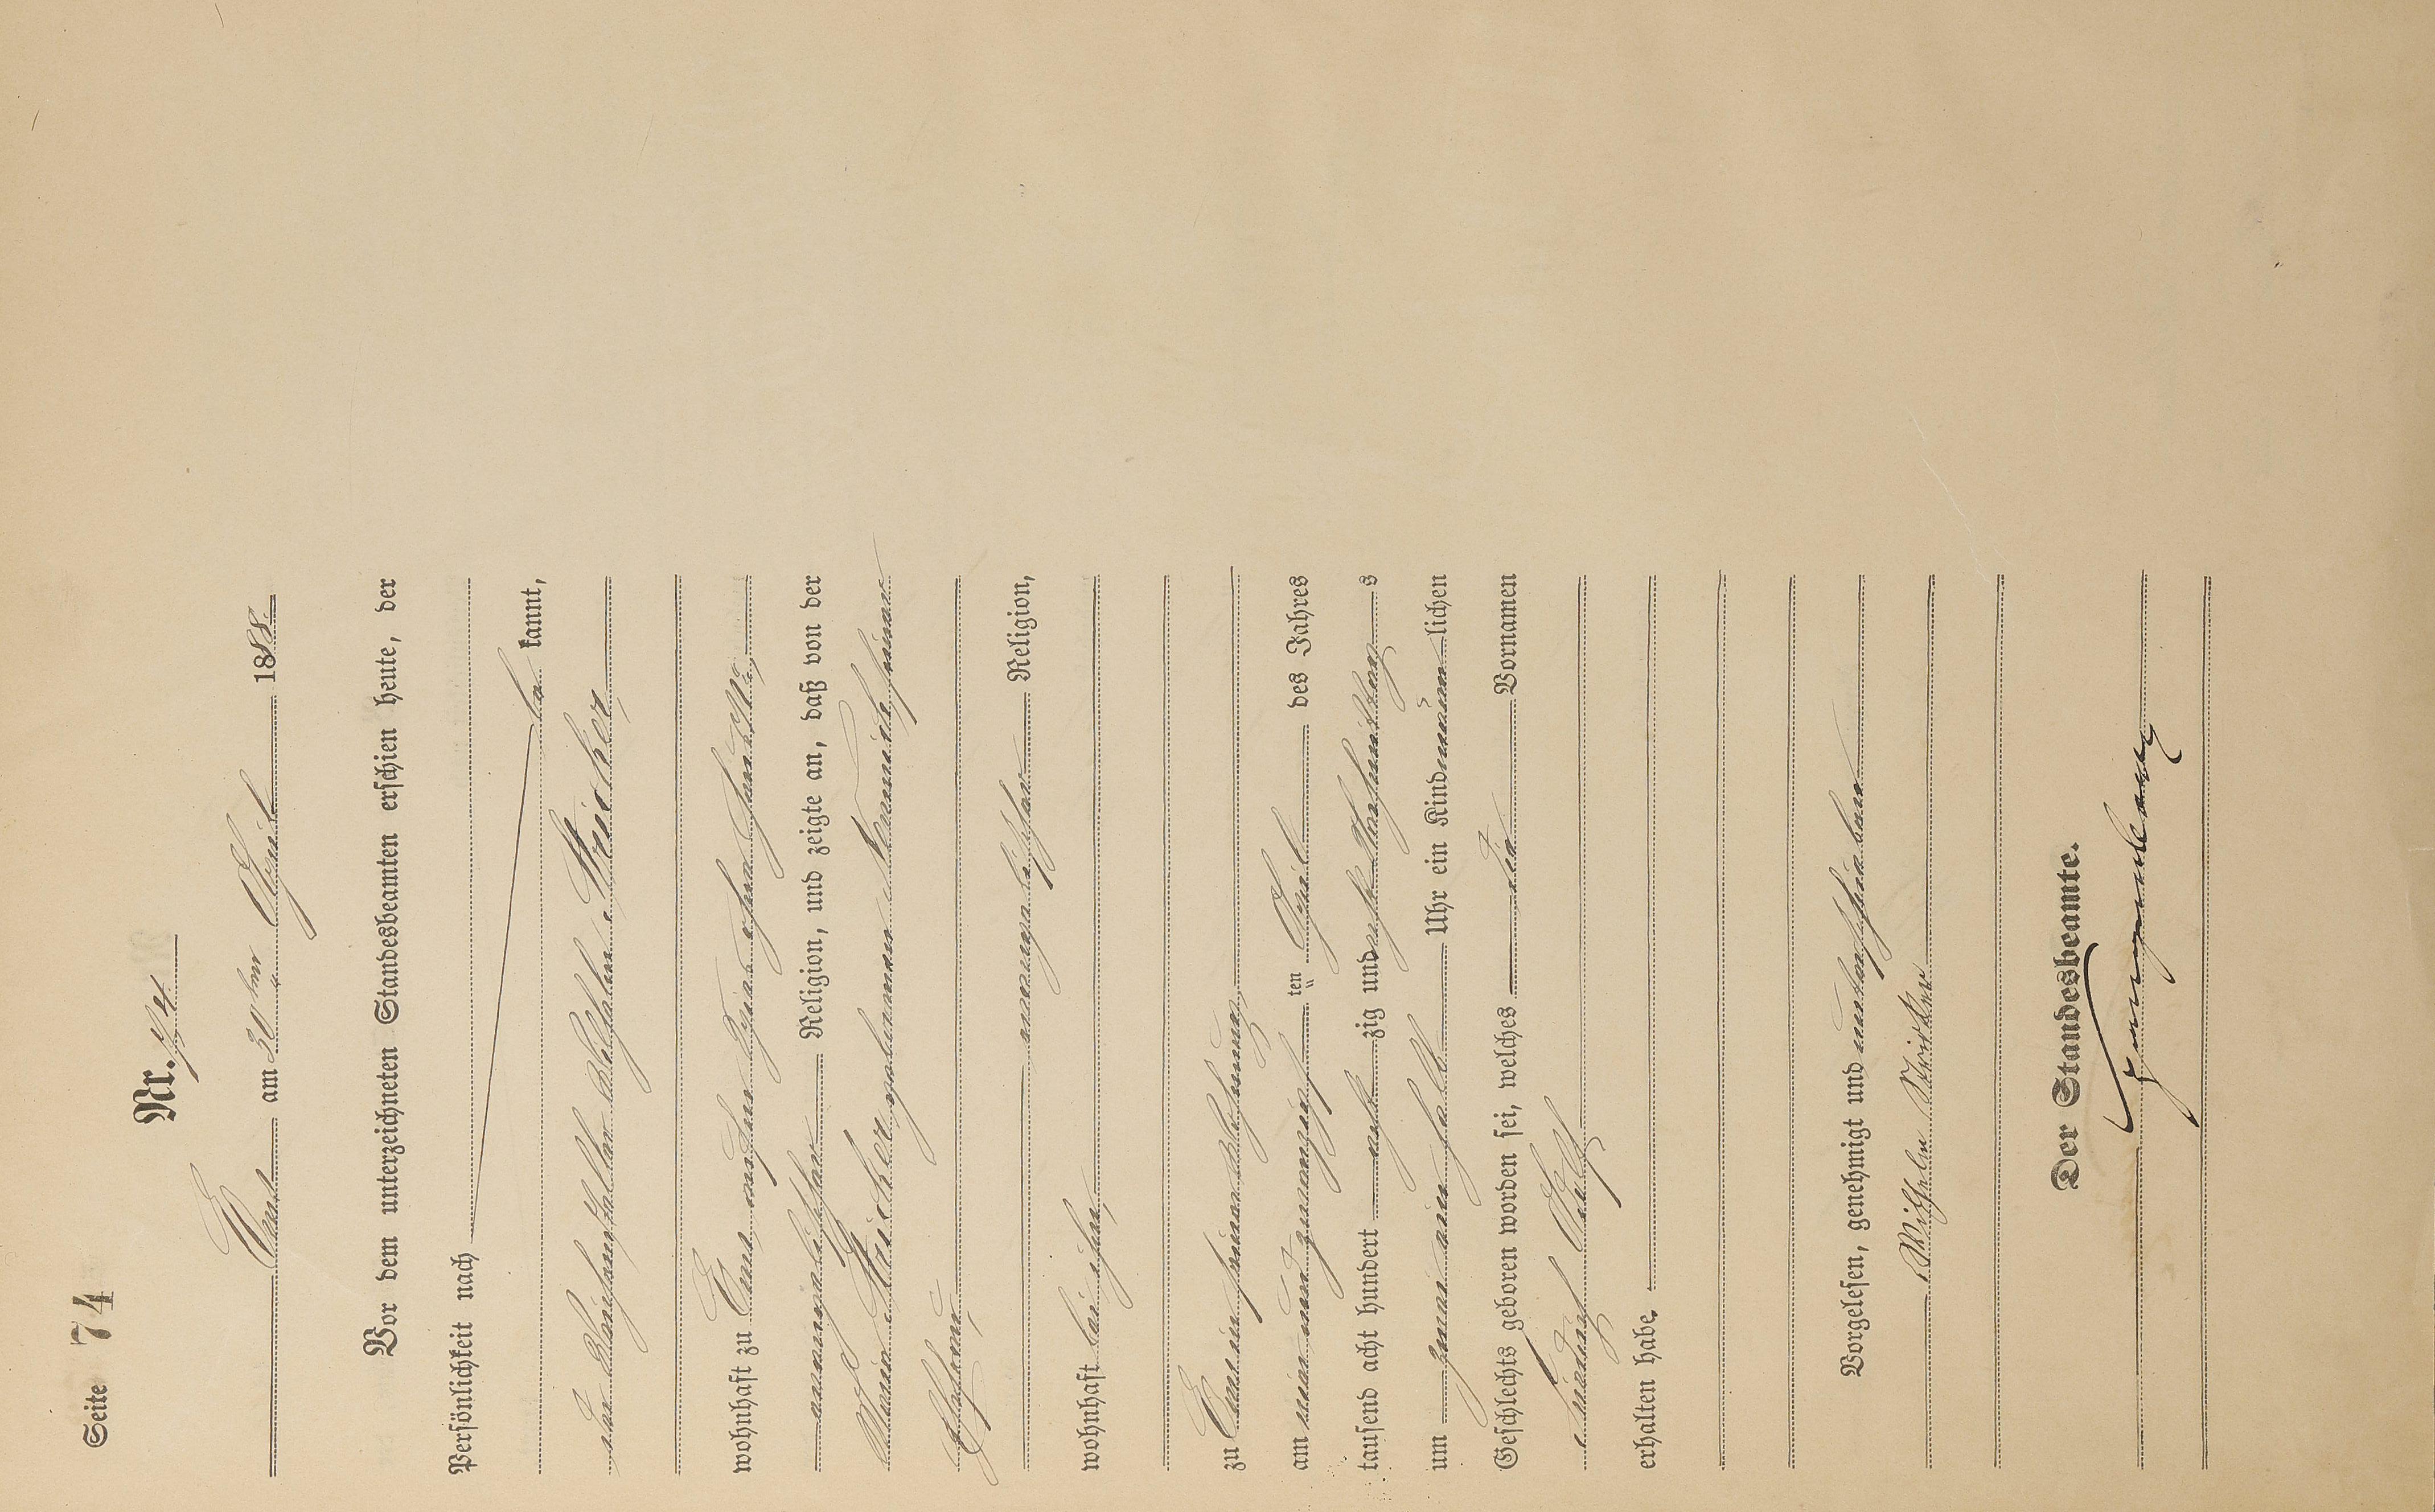 Seite 74
Nr. 74
Ems am 30ten April 1888
Vor dem unterzeichneten Standesbeamten erschien heute, der
Persönlichkeit nach
be kannt,
der Wilhelm Stricker,
wohnhaft zu Ems,
evangelischer Religion, und zeigte an, daß von der
Stricker, geborenen seiner
Ehefrau,
evangelischer Religion,
wohnhaft bei ihm,
zu Ems in seiner Wohnung
am neun und zwanzigsten April des Jahres
tausend acht hundert achtzig und acht Nachmittags
um Uhr ein Kind männlichen
Geschlechts geboren worden sei, welches die Vornamen
Adolf
erhalten habe.
Vorgelesen, genehmigt und unterschrieben
Wilhelm Stricker
Der Standesbeamte.